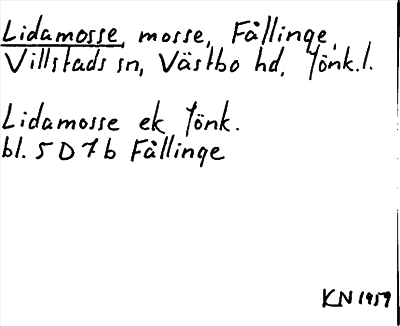 Lidamosse, mosse, Fållinge,
Villstads sn, Västbo hd, Jönk.l.
Lidamosse ek Jönk.
bl. 5 D 7 b Fållinge
KN 1959